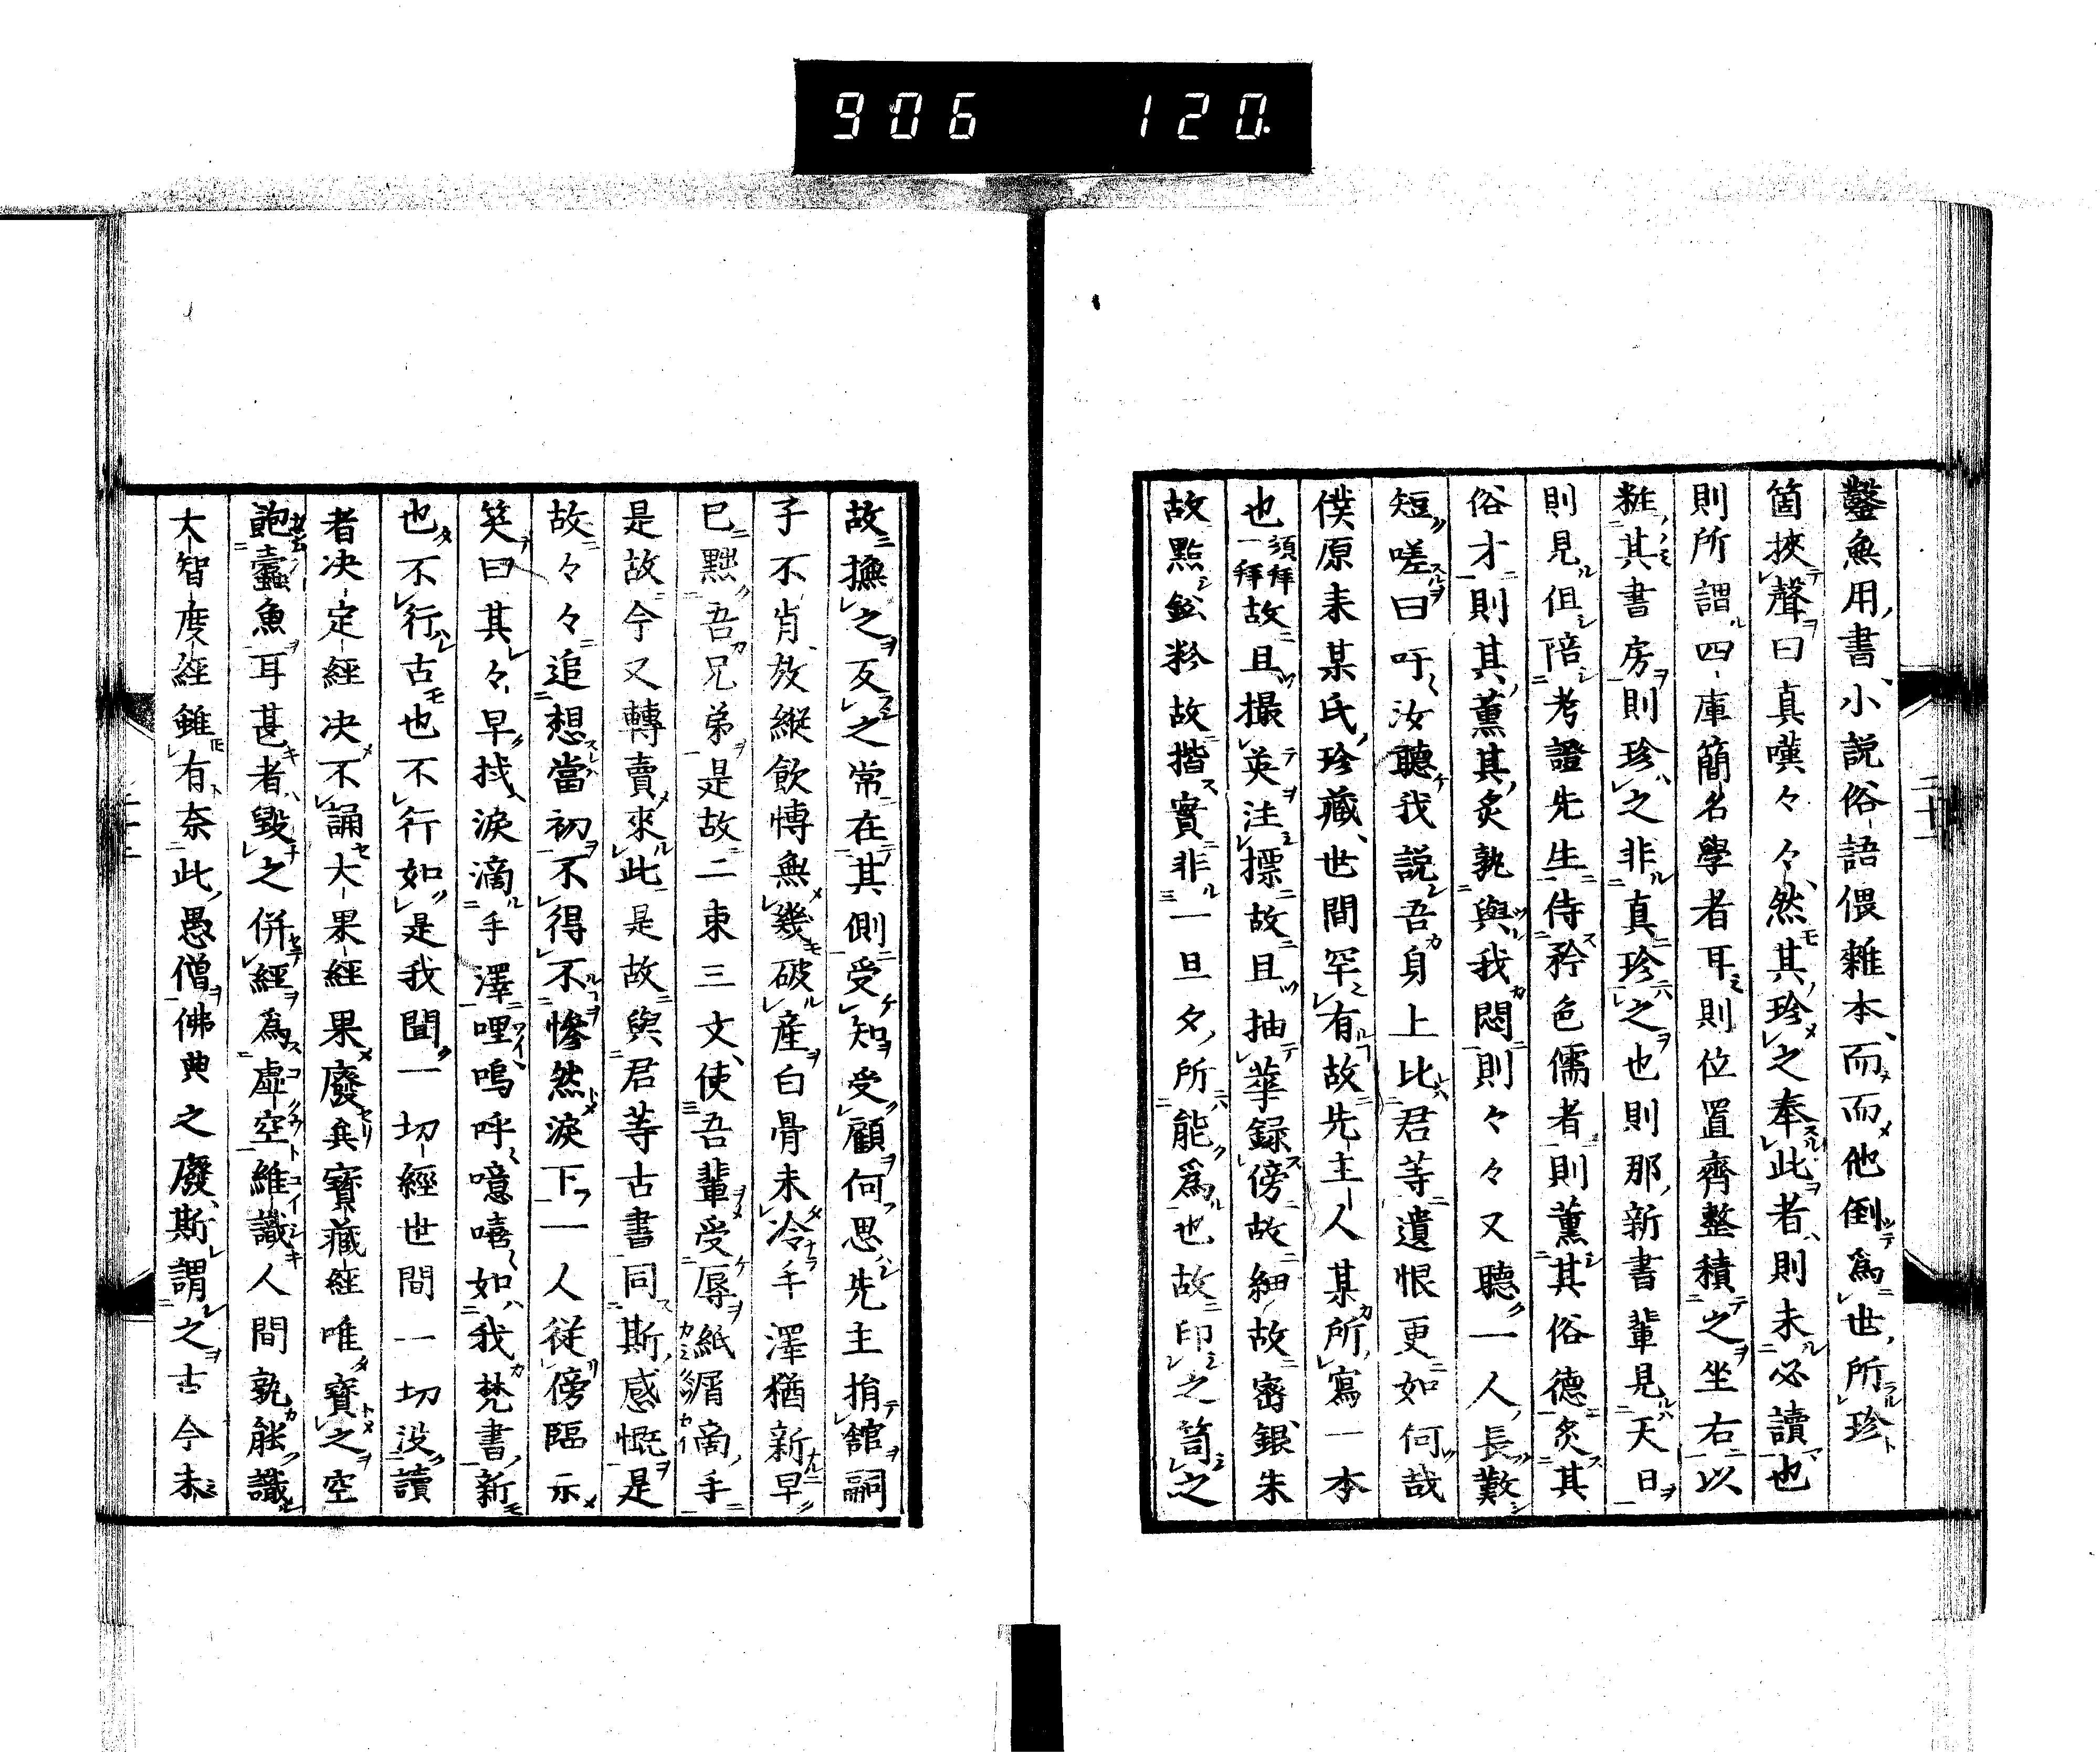 906 120
鑿無用書小説俗語偎雜本而而他倒為世所珍
箇挾聲曰真嘆々々然其珍之奉此者則未必讀也
則所謂四庫簡名學者耳則位置齊整積之坐右以
粧其書房則珍之非真珍之也則那新書輩見天日
則見但陪考證先生侍矜色儒者則薫其俗德炙其
俗才則其薫其炙孰與我悶則々々又聽一人長歎
短嗟曰吁汝聽我説吾身上比君等遺恨更如何哉
僕原来某氏珍藏世間罕有故先主人某所寫一本
也須拜一拜故且撮英注標故且抽華録傍故細故密銀朱
故點鉛粉故揩實非一旦夕所能為也故印之笥之
故撫之友之常在其側受知受顧何思先主捐館嗣
子不肖放縱飲慱無幾破産白骨未冷手澤猶新早
已黜吾兄弟是故二束三文使吾輩受辱紙屑商手
是故今又轉賣來此是故與君等古書同斯感慨是
故々々追想當初不得不慘然淚下一人従傍臨示
笑曰其々早找淚滴手澤哩嗚呼噫嘻如我梵書新
也不行古也不行如是我聞一切經世間一切没讀
者决定經决不誦大果經果廢矣寳藏經唯寳之空
飽蠹魚耳甚者毀之併經為虚空維識人間孰能識
大智度經雖有奈此愚僧佛典之廢斯謂之古今未